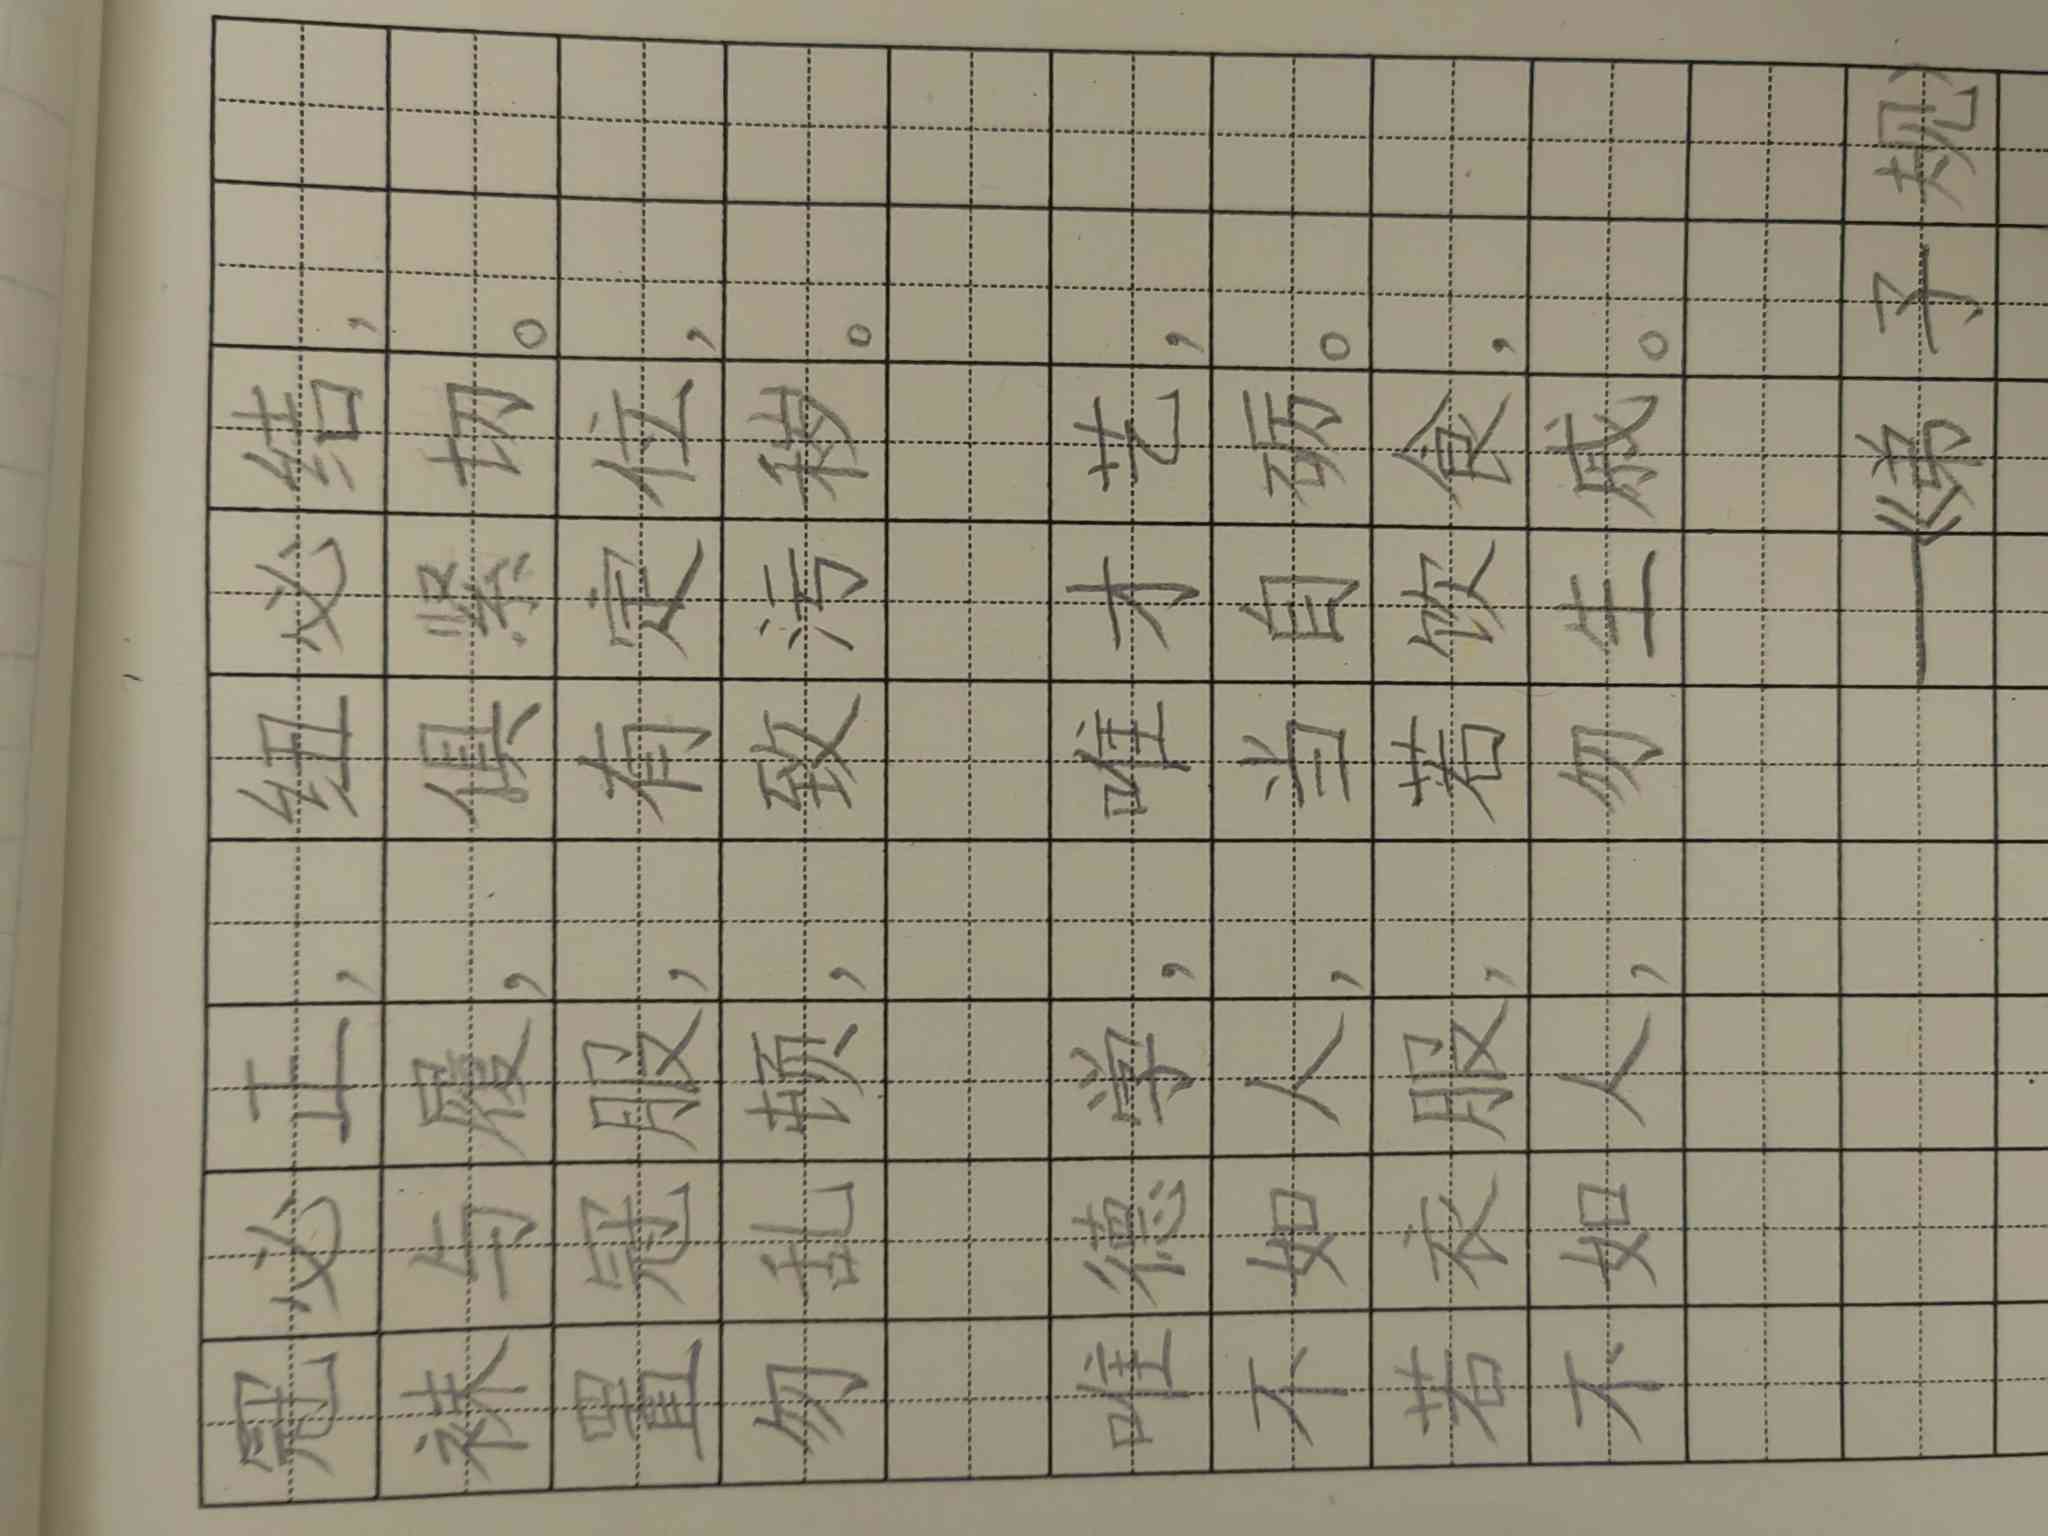 冠必正，纽必结，
袜与履，俱紧切。
置冠服，有定位，
勿乱顿，致污秽。
唯德学，唯才艺，
不如人，当自砺。
若衣服，若饮食，
不如人，勿生戚。
——《弟子规》